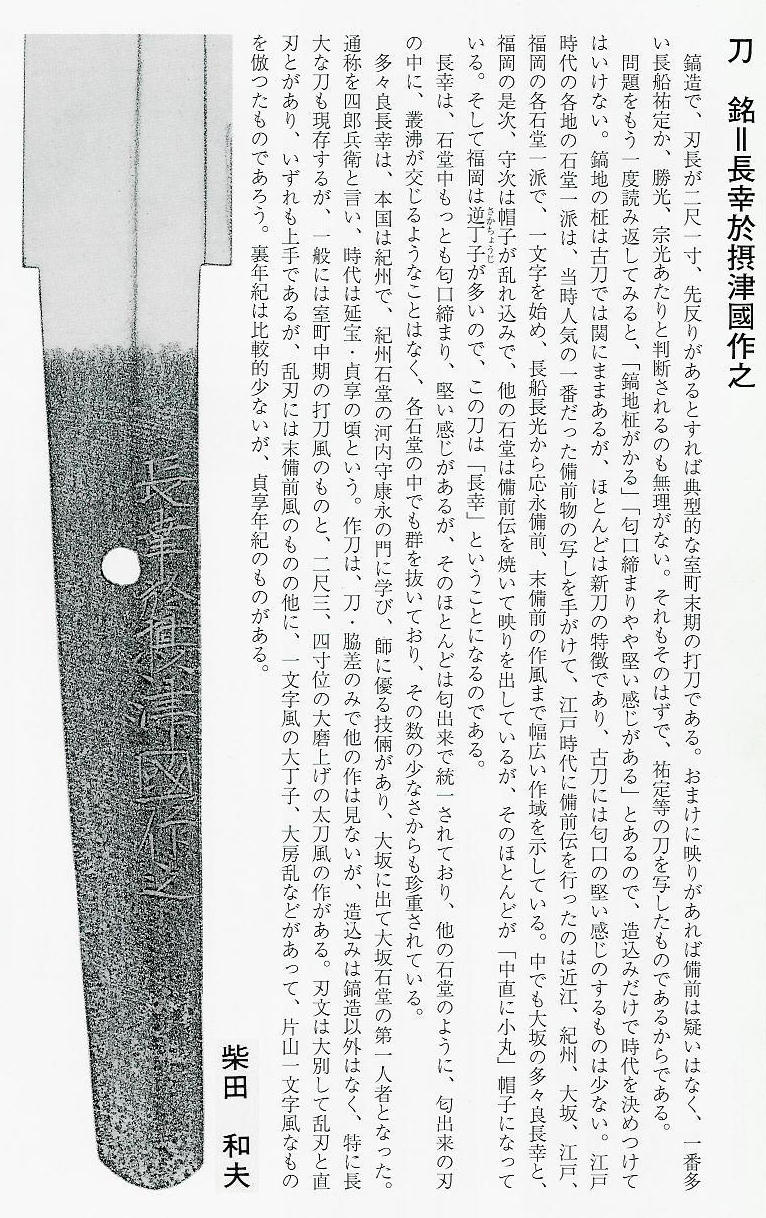 刀　銘＝長幸於摂津國作之
鎬造で、刃長が二尺一寸、先反りがあるとすれば典型的な室町末期の打刀である。おまけに映りがあれば備前は疑いはなく、一番多
い長船祐定か、勝光、宗光あたりと判断されるのも無理がない。それもそのはずで、祐定等の刀を写したものであるからである。
問題をもう一度読み返してみると、「鎬地柾がかる」「匂口締まりやや堅い感じがある」とあるので、造込みだけで時代を決めつけて
はいけない。鎬地の柾は古刀では関にままあるが、ほとんどは新刀の特徴であり、古刀には匂口の堅い感じのするものは少ない。江戸
時代の各地の石堂一派は、当時人気の一番だった備前物の写しを手がけて、江戸時代に備前伝を行ったのは近江、紀州、大坂、江戸、
福岡の各石堂一派で、一文字を始め、長船長光から応永備前、末備前の作風まで幅広い作域を示している。中でも大坂の多々良長幸と、
福岡の是次、守次は帽子が乱れ込みで、他の石堂は備前伝を焼いて映りを出しているが、そのほとんどが「中直に小丸」帽子になって
いる。そして福岡は逆丁子が多いので、この刀は「長幸」ということになるのである。
さかちょうじ
長幸は、石堂中もっとも匂口締まり、堅い感じがあるが、そのほとんどは匂出来で統一されており、他の石堂のように、匂出来の刃
の中に、叢沸が交じるようなことはなく、各石堂の中でも群を抜いており、その数の少なさからも珍重されている。
多々良長幸は、本国は紀州で、紀州石堂の河内守康永の門に学び、師に優る技倆があり、大坂に出て大坂石堂の第一人者となった。
通称を四郎兵衛と言い、時代は延宝・貞享の頃という。作刀は、刀・脇差のみで他の作は見ないが、造込みは鎬造以外はなく、特に長
大な刀も現存するが、一般には室町中期の打刀風のものと、二尺三、四寸位の大磨上げの太刀風の作がある。刃文は大別して乱刃と直
刃とがあり、いずれも上手であるが、乱刃には末備前風のものの他に、一文字風の大丁子、大房乱などがあって、片山一文字風なもの
を倣つたものであろう。裏年紀は比較的少ないが、貞享年紀のものがある。
柴田　和夫
長幸於摂津國作之